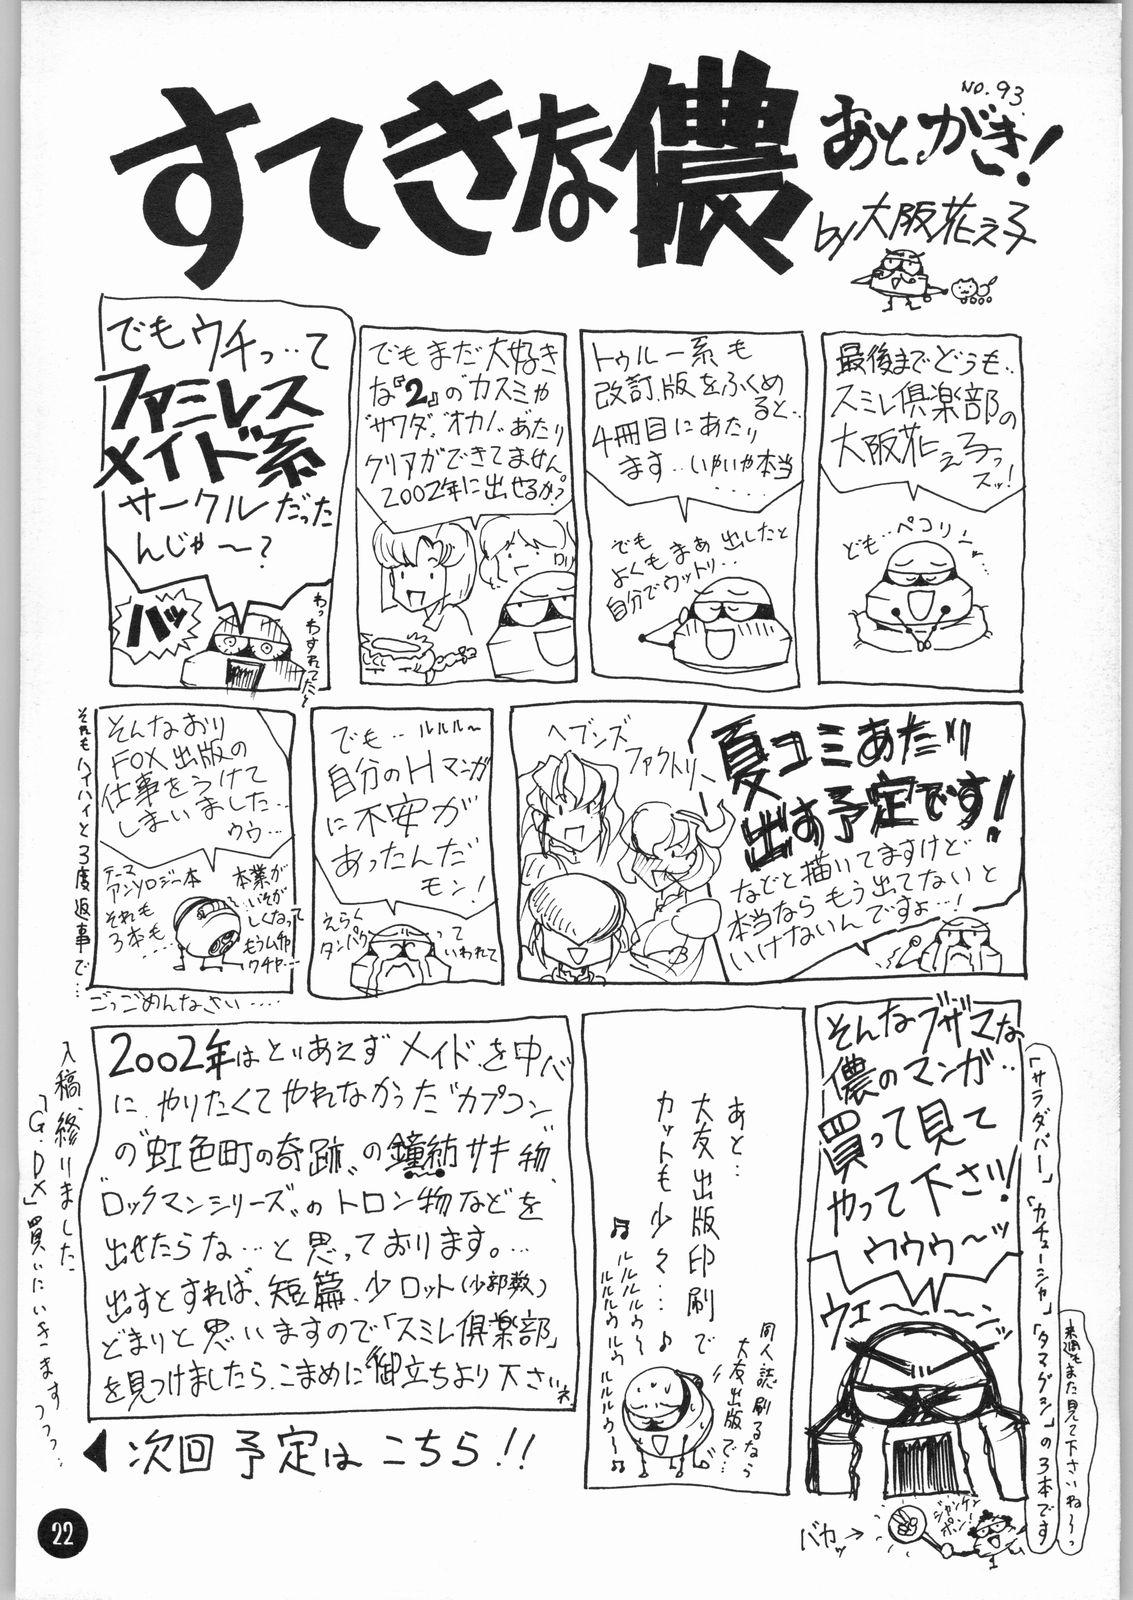 すてきな儂
NO.93
あとがき!
by 大阪花え子
最後までどうも..
スミレ倶楽部の
大阪花え子っ
スッ!
ども..ペコリ
トゥルー系も
改訂版をふくめ
ると..
4冊目にあたり
ます..いやいや本当
....
でも
よくもまあ出したと
自分でウットリ...
でもまだ大好き
な『2』のカスミや
"サワダ"、"オカノ"あたり
クリアができてません
2002年に出せるか?
ロリ
でもウチっ..て
ファミレス
メイド系
サークルだった
んじゃ〜?
ハッ
わっわすれてたよ
ヘブンズ
ファクトリー
夏コミあたり
出す予定です!
などと描いてますけど
本当ならもう出てないと
いけないんですよ...!
でも..ルルル〜
自分のHマンガ
に不安が
あったんだ
モン!
えらく
タンパク
って
いわれて
そんなおり
FOX出版の
仕事をうけて
しまいました...
ウウ...
テーマ
アンソロジー本
それも
3本も...
本業が
いそが
しくなって
もうムチャ
クチャ...
それもハイハイと3度返事で...
ごっごめんなさい....
そんなブザマな
儂のマンガ..
買って見て
やって下さい!
ウゥゥ〜ッ
ウェ〜〜ン
「サラダバー」「カチューシャ」「タマダン」の3本です
来週もまた見て下さいね〜っ
ジャンケン
ポン!
バカッ→
あと...
大友出版印刷で
カットも少々...♪
♫ルルルルゥ〜
ルルルゥルゥルルルゥ〜♫
同人誌刷るなら
大友出版で...
2002年はとりあえずメイドを中心
に、やりたくてやれなかった"カプコン"
の"虹色町の奇跡"の鐘紡サキ物、
"ロックマンシリーズ"のトロン物などを
出せたらな...と思っております。...
出すとすれば、短篇、少ロット(少部数)
どまりと思いますので「スミレ倶楽部」
を見つけましたら、こまめに御立ちより下さいね
入稿、終りました
「G.DX」買いにいきますっっっ..
◀次回予定はこちら!!
22